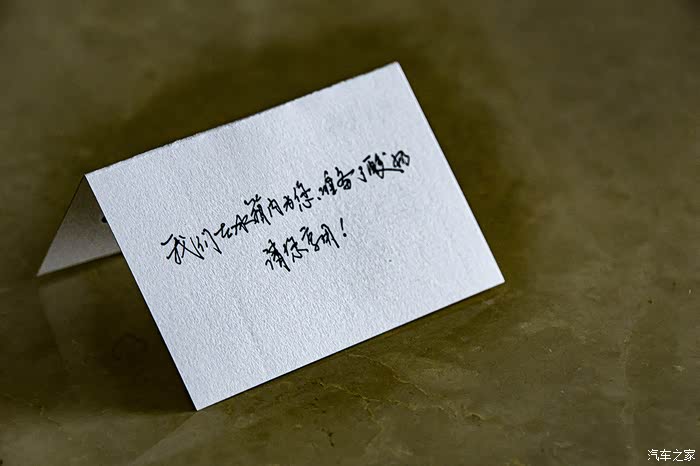 我们在冰箱内为您准备了酸奶
请您享用！
汽车之家